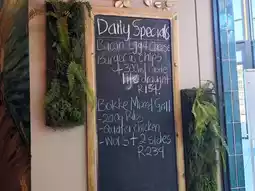 Daily Specials
Bacon Egg + Cheese
Burger + Chips
+ 300ml
draught
R154
Mixed Grill
-200g Ribs
-Quarter chicken
-Wors + 2 sides
R234